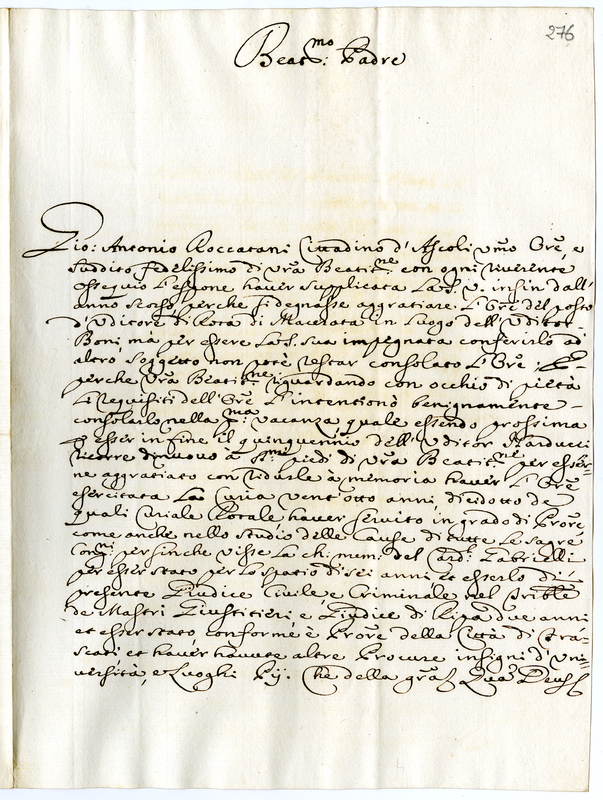 276
Beat.mo Padre
Gio: Antonio Roccatani Cittadino d'Ascoli umo Ore, e
suddito fedelissimo di Vra Beatit.ne con ogni riverente
ossequio l'espone haver supplicata la S. V. insin dall'
anno scorso, perche si degnasse aggratiare l'Ore del posto
d'Uditore di Rota di Macerata in luogo dell'Uditor
Boni, mà per essere la S. sua impegnata conferirlo ad
altro soggetto non potè restar consolato l'Ore; E
perche Vra Beatit.ne riguardando con occhio di pietà
l requisiti dell'Ore l'intentionò benignamente
consolarlo nella p.ma vacanza quale essendo prossima
p esser in fine il quinquennio dell'Uditor Narducci
ricorre di nuovo à S.mi piedi di Vra Beatit.ne per esser=
ne aggratiato con ridurle à memoria haver l'Ore
esercitata la Curia vent'otto anni, dicidotto de
quali Curiale Rotale haver servito in grado di Prore
come anche nello studio delle Cause di tutte le sagre
Con.ni per sinche visse la ch: mem: del Card. Gabrielli
per esser stato per lo spatio di sei anni et esserlo di
presente Giudice Civile e Criminale nel Trible
de Mastri Giustitieri, e Giudice di Ripa due anni
et esser stato, conforme è Prore della Città di Fra=
scati et haver havute altre Procure insigni d'Uni=
versità, e Luoghi Pij. Che della gra Quã Deus